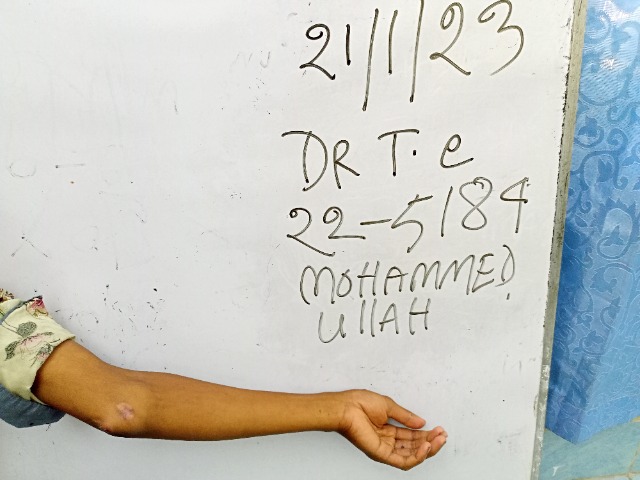 21/1/23
DR T. e
22-5184
MOHAMMED
UllAH